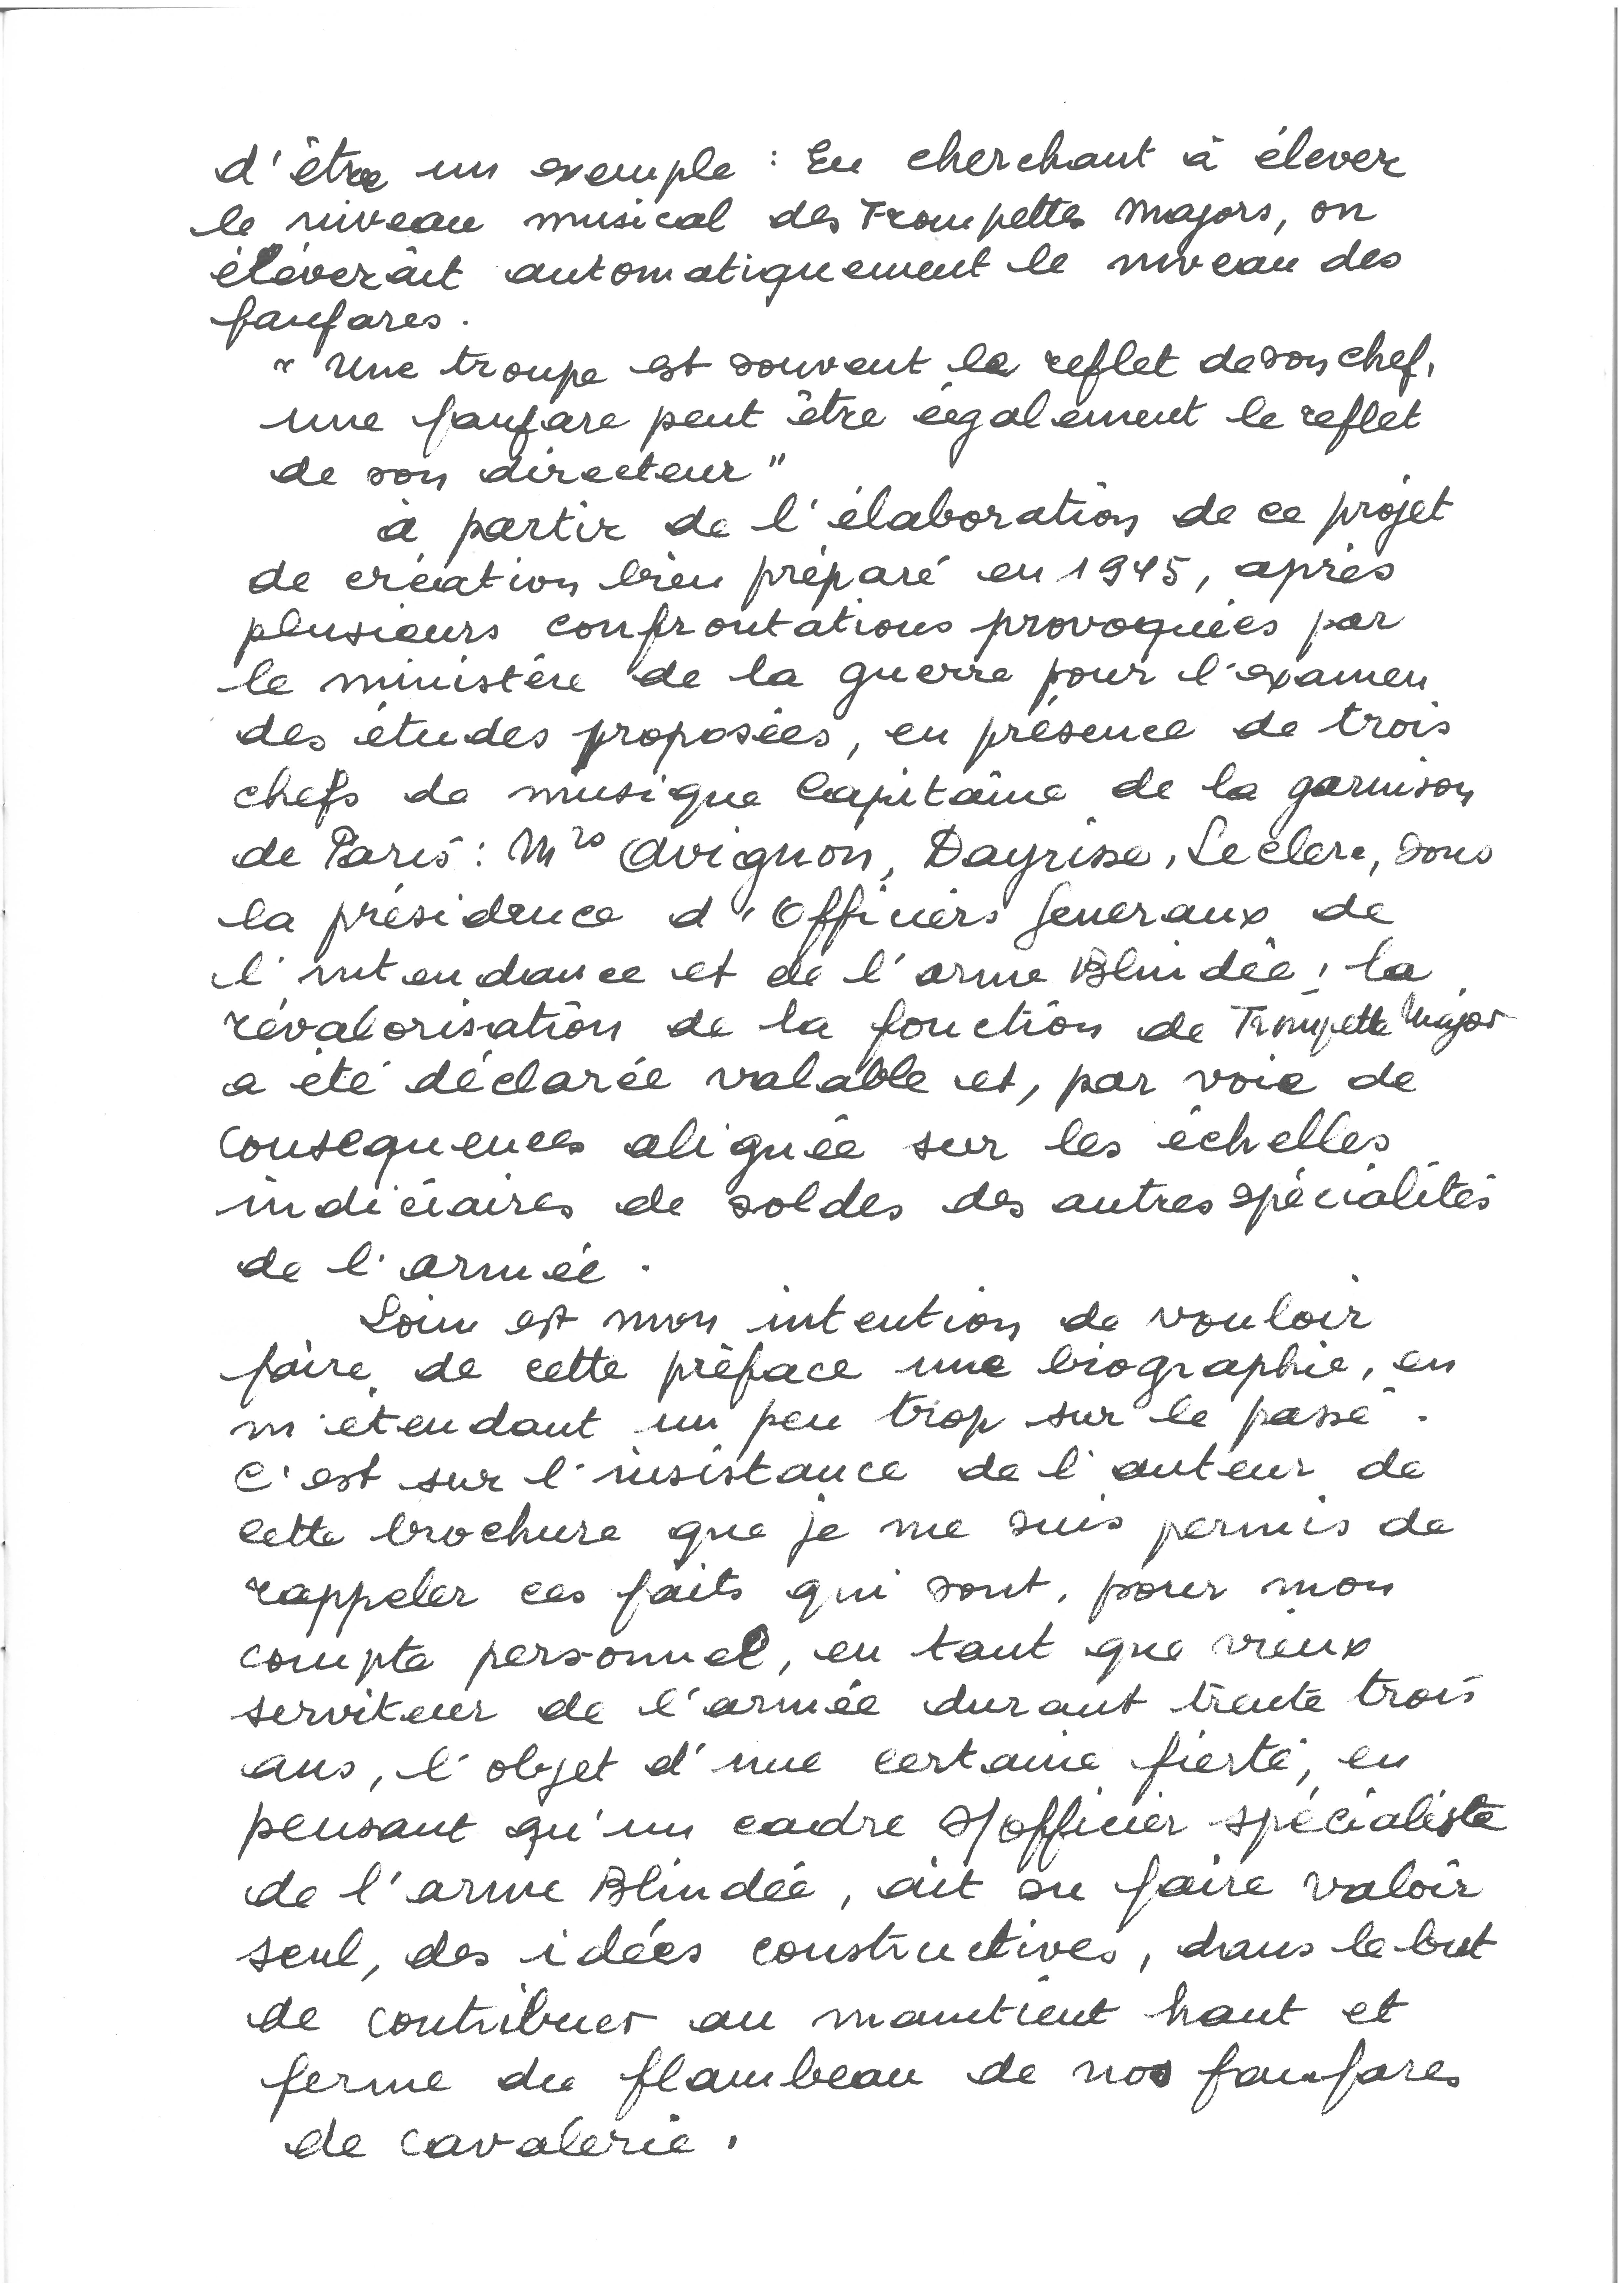 d'être un exemple : En cherchant à élever
le niveau musical des Trompettes Majors, on
élèverait automatiquement le niveau des
fanfares.
" Une troupe est souvent le reflet de son chef,
une fanfare peut être également le reflet
de son directeur "
à partir de l'élaboration de ce projet
de création bien préparé en 1945, après
plusieurs confrontations provoquées par
le ministère de la guerre pour l'examen
des études proposées, en présence de trois
chefs de musique Capitaine de la garnison
de Paris : Mrs Avignon, Dayrisse, Leclerc, sous
la présidence d'Officiers Generaux de
l'intendance et de l'arme Blindée, la
révalorisation de la fonction de Trompette Major
a été déclarée valable et, par voie de
consequences aliguée sur les échelles
indiciaires de soldes des autres spécialités
de l'armée.
Loin est mon intention de vouloir
faire de cette préface une biographie, en
m'étendant un peu trop sur le passé.
C'est sur l'insistance de l'auteur de
cette brochure que je me suis permis de
rappeler ces faits qui sont, pour mon
compte personnel, en tant que vieux
serviteur de l'armée durant trente trois
ans, l'objet d'une certaine fierté, en
pensant qu'un cadre s/officier spécialiste
de l'arme Blindée, ait su faire valoir
seul, des idées constructives, dans le but
de contribuer au maintient haut et
ferme du flambeau de nos fanfares
de cavalerie.